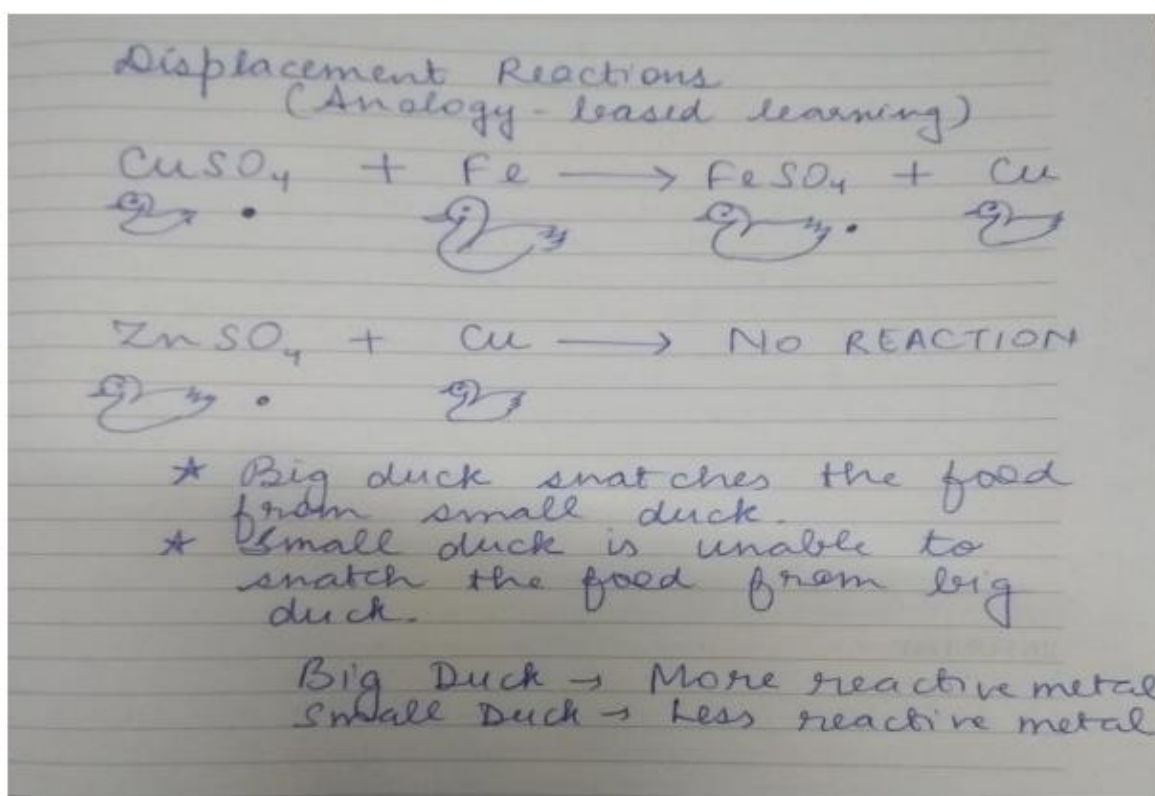 Displacement Reactions
(Anology-based learning)
CuSO₄ + Fe → FeSO₄ + Cu
ZnSO₄ + Cu → NO REACTION
* Big duck snatches the food
from small duck.
* Small duck is unable to
snatch the food from big
duck.
Big Duck → More reactive metal
Small Duck → Less reactive metal